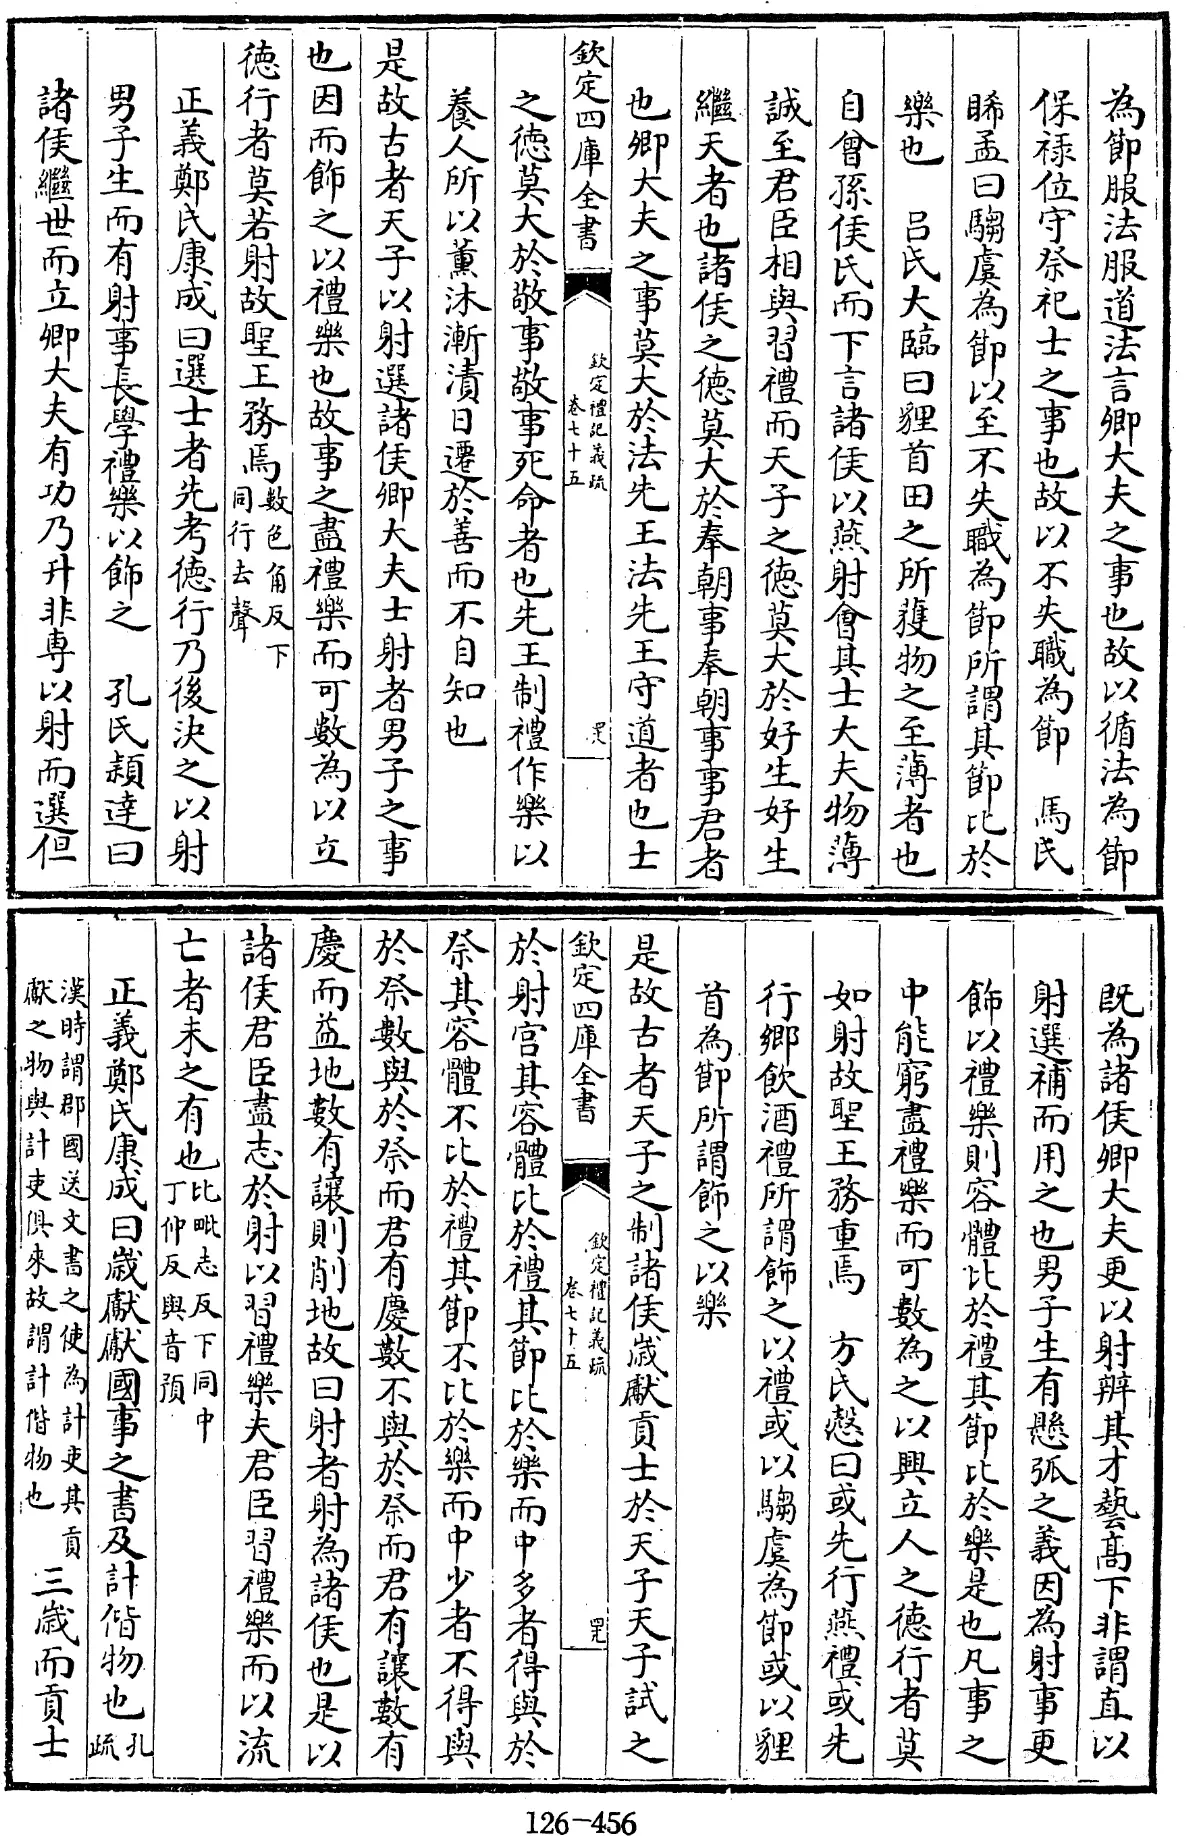 為節服法服道法言卿大夫之事也故以循法為節
保禄位守祭祀士之事也故以不失職為節　馬氏
睎孟曰騶虞為節以至不失職為節所謂其節比於
樂也　吕氏大臨曰貍首田之所獲物之至薄者也
自曾孫侯氏而下言諸侯以燕射會其士大夫物薄
誠至君臣相與習禮而天子之徳莫大於好生好生
繼天者也諸侯之徳莫大於奉朝事奉朝事事君者
也卿大夫之事莫大於法先王法先王守道者也士
欽定四庫全書
欽定禮記義疏
卷七十五
之徳莫大於敬事敬事死命者也先王制禮作樂以
養人所以薫沐漸漬日遷於善而不自知也
是故古者天子以射選諸侯卿大夫士射者男子之事
也因而飾之以禮樂也故事之盡禮樂而可數為以立
徳行者莫若射故聖王務焉數色角反下
同行去聲
正義鄭氏康成曰選士者先考徳行乃後決之以射
男子生而有射事長學禮樂以飾之　孔氏頴達曰
諸侯繼世而立卿大夫有功乃升非専以射而選但
既為諸侯卿大夫更以射辨其才藝髙下非謂直以
射選補而用之也男子生有懸弧之義因為射事更
飾以禮樂則容體比於禮其節比於樂是也凡事之
中能窮盡禮樂而可數為之以興立人之徳行者莫
如射故聖王務重焉　方氏慤曰或先行燕禮或先
行鄉飲酒禮所謂飾之以禮或以騶虞為節或以貍
首為節所謂飾之以樂
是故古者天子之制諸侯歲獻貢士於天子天子試之
欽定四庫全書
欽定禮記義疏
卷七十五
於射宫其容體比於禮其節比於樂而中多者得與於
祭其容體不比於禮其節不比於樂而中少者不得與
於祭數與於祭而君有慶數不與於祭而君有讓數有
慶而益地數有讓則削地故曰射者射為諸侯也是以
諸侯君臣盡志於射以習禮樂夫君臣習禮樂而以流
亡者未之有也比毗志反下同中
丁仲反與音預
正義鄭氏康成曰歲獻獻國事之書及計偕物也孔
疏
漢時謂郡國送文書之使為計吏其貢
獻之物與計吏俱來故謂計偕物也　三歲而貢士
126-456